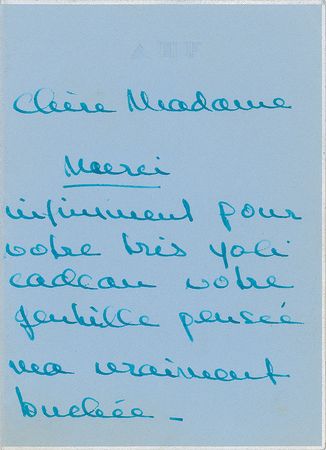 Chère Madame
Merci
infiniment pour
votre très joli
cadeau votre
gentille pensée
ma vraiment
touchée _